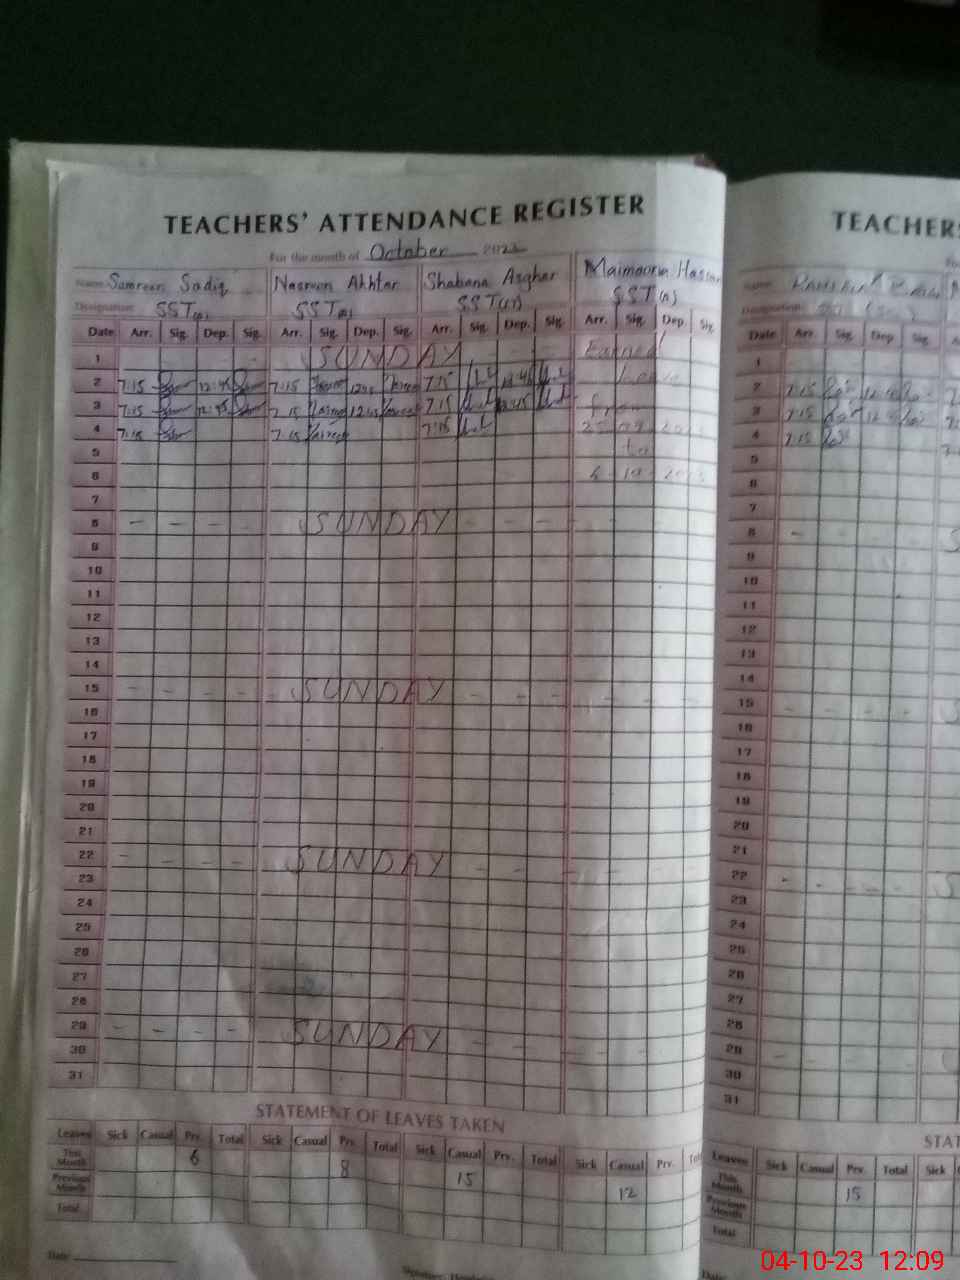 TEACHERS' ATTENDANCE REGISTER
For the month of October 2023
Name Samreen Sadiq Nasreen Akhtar Shabana Asghar Maimoona Hassan
Designation SST SST SST SST
Date Arr. Sig. Dep. Sig. Arr. Sig. Dep. Sig. Arr. Sig. Dep. Sig. Arr. Sig. Dep. Sig.
1 SUNDAY Earned
2 7:15 12:45 7:15 7:15 12:45 Leave
3 7:15 12:45 7:15 7:15 12:45 from
4 7:15 7:15 7:15
5 to
6
7
8 - - - - SUNDAY - - -
9
10
11
12
13
14
15 - - - - SUNDAY - - - -
16
17
18
19
20
21
22 - - - - SUNDAY - - -
23
24
25
26
27
28
29 - - - - SUNDAY - - -
30
31
STATEMENT OF LEAVES TAKEN
Leaves Sick Casual Prv. Total Sick Casual Prv. Total Sick Casual Prv. Total Sick Casual Prv.
This Month 6 8 15 12
Previous Month
Total
Date
TEACHERS
Name
Date Arr. Sig. Dep. Sig.
1
2 7:15
3 7:15
4 7:15
5
6
7
8
9
10
11
12
13
14
15
16
17
18
19
20
21
22
23
24
25
26
27
28
29
30
31
STAT
Leaves Sick Casual Prv. Total Sick
This Month 15
Previous Month
Total
04-10-23 12:09